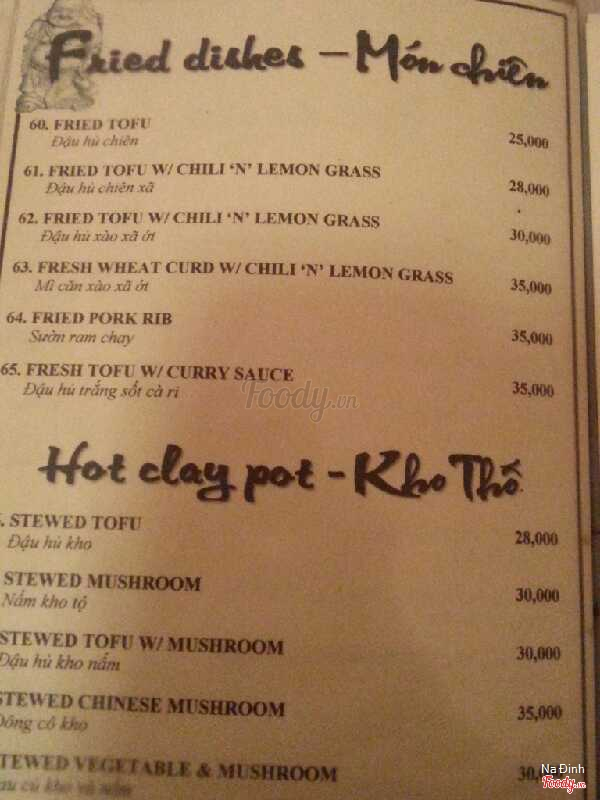 Fried dishes – Món chiên
60. FRIED TOFU
Đậu hủ chiên
25,000
61. FRIED TOFU W/ CHILI ‘N’ LEMON GRASS
Đậu hủ chiên xã
28,000
62. FRIED TOFU W/ CHILI ‘N’ LEMON GRASS
Đậu hủ xào xã ớt
30,000
63. FRESH WHEAT CURD W/ CHILI ‘N’ LEMON GRASS
Mì căn xào xã ớt
35,000
64. FRIED PORK RIB
Sườn ram chay
35,000
65. FRESH TOFU W/ CURRY SAUCE
Đậu hủ trắng sốt cà ri
35,000
Foody.vn
Hot clay pot - Kho Thố
. STEWED TOFU
Đậu hủ kho
28,000
STEWED MUSHROOM
Nấm kho tộ
30,000
STEWED TOFU W/ MUSHROOM
Đậu hủ kho nấm
30,000
STEWED CHINESE MUSHROOM
Đông cô kho
35,000
STEWED VEGETABLE & MUSHROOM
củ kho và nấm
Na Đinh
Foody.vn